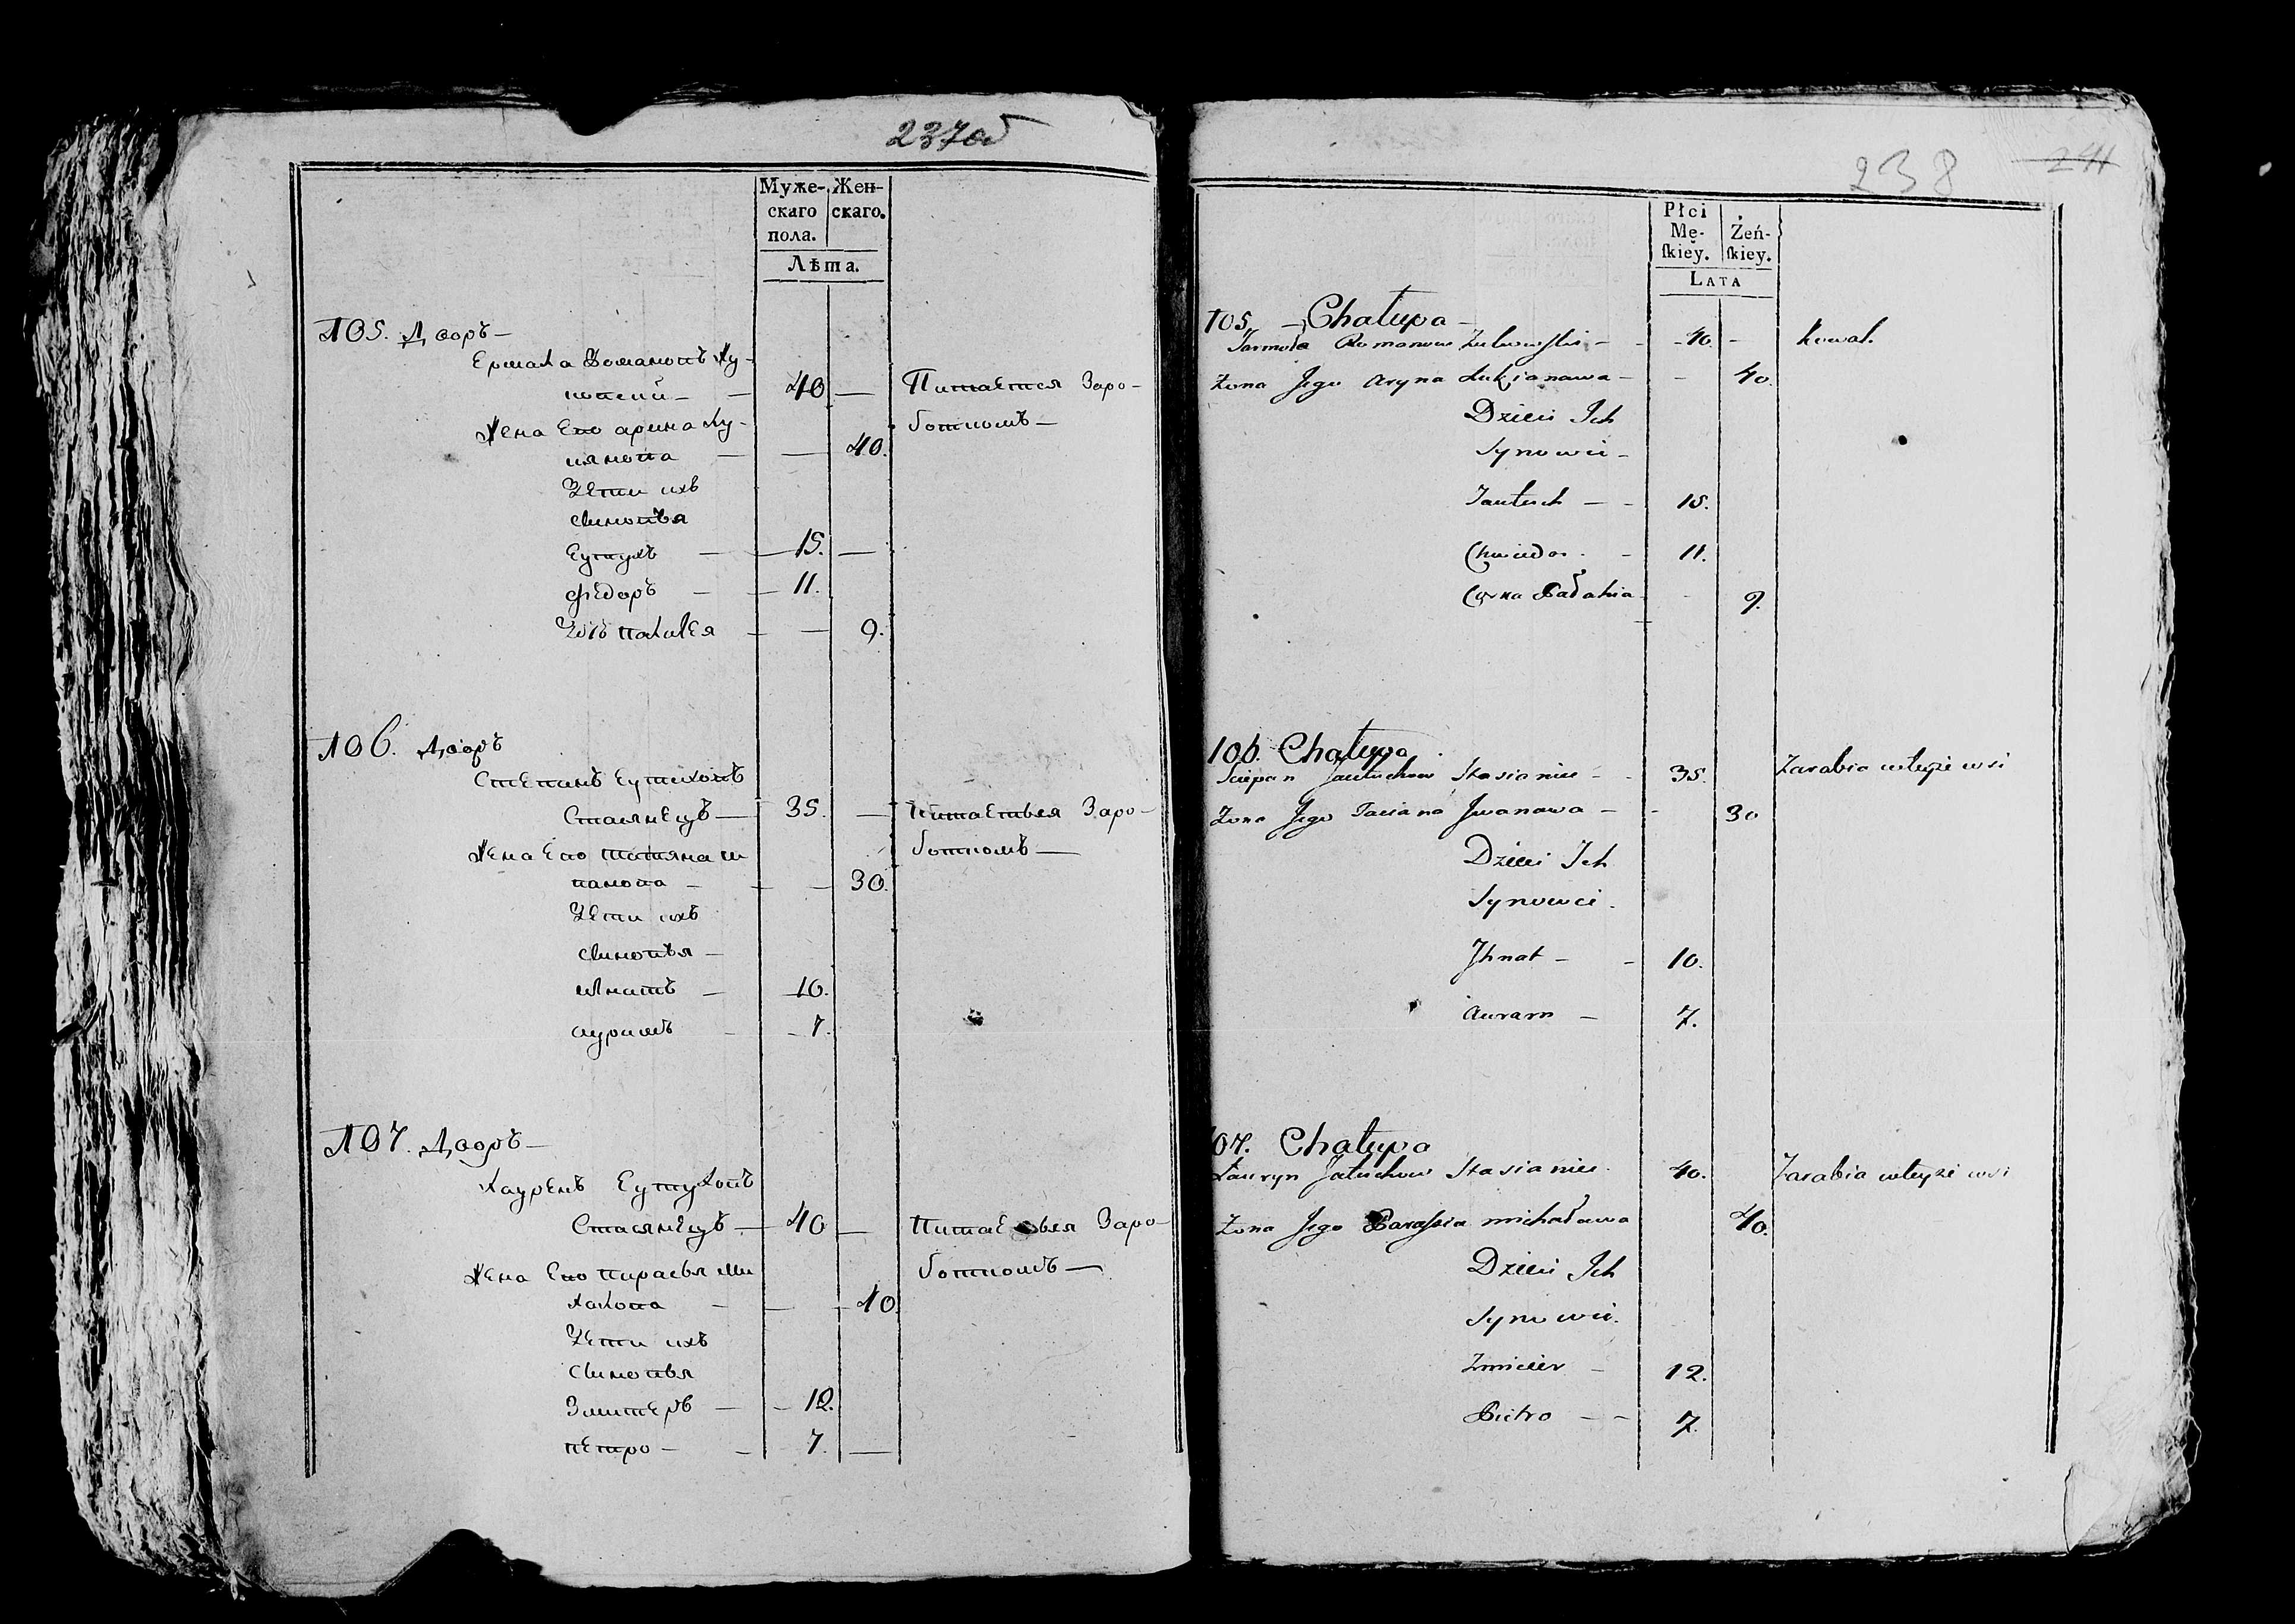 237об
Муже-
скаго
пола.
Жен-
скаго.
Лѣта.
105. Дворъ —
Ермала Романовъ
40 —
Питается Заро-
боткомъ —
Жена Его арина Лу-
кянова — — 40.
Дети ихъ
синовья
Еутухъ — — 15. —
Федоръ — — 11.
Дочь палагея — — 9.
106. Дворъ
Степанъ Еутиховъ
Стасянецъ — 35. — Питаетьея Заро-
боткомъ —
Жена Его татяна и
ванова — — — 30.
Дети ихъ
синовья —
игнатъ — 10.
аурамъ — — 7.
107. Дворъ —
Лауренъ Еутуховъ
Стасянецъ — 40 — Заро-
боткомъ —
Жена Его парасья Ми
халова — — — 40.
Дети ихъ
синовья
Змитеръ — — 12.
петро — — 7. —
238 241
Płci
Mę-
ſkiey.
Żeń-
ſkiey.
LATA
105. — Chałupa —
Jarmoła Romanow — - 40. — kowal.
Żona Jego Aryna Łukjanawa — - 40.
Dzieci Ich
Synowie —
Jautuch — - 15.
Chwiedor. - 11.
Corka Pałahia - 9.
106. Chałupa
Sciepan Jautuchow Stasianiec - - 35. Zarabia wteyże wsi
Żona Jego Taciana Jwanawa — - 30
Dzieci Ich
Synowie.
Jhnat — - 10.
Auram — 7.
107. Chałupa
Łauryn Jatuchow Stasianiec. 40. Zarabia wteyże wsi
Żona Jego Parassia Michaława 40.
Dzieci Ich
Synowie.
Zmicier — 12.
Pietro — - 7.